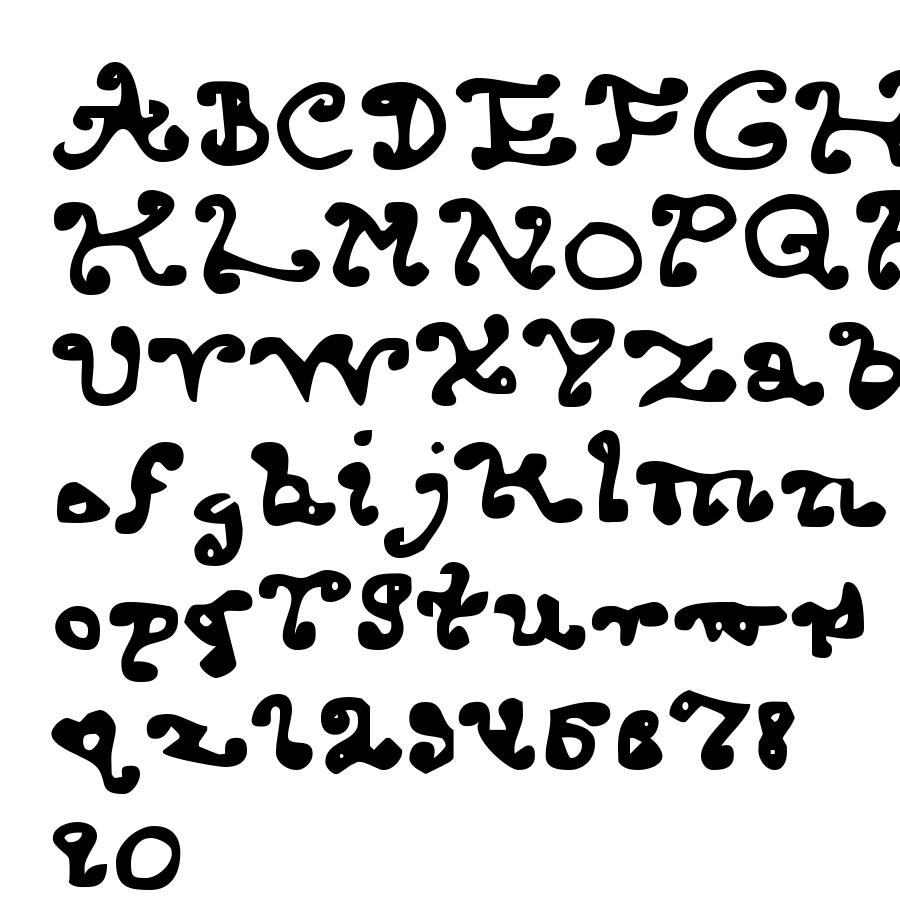 ABCDEFGH
KLMNOPQR
UVWXYZab
efghijklmn
opqrstuvwx
yz12345678
90